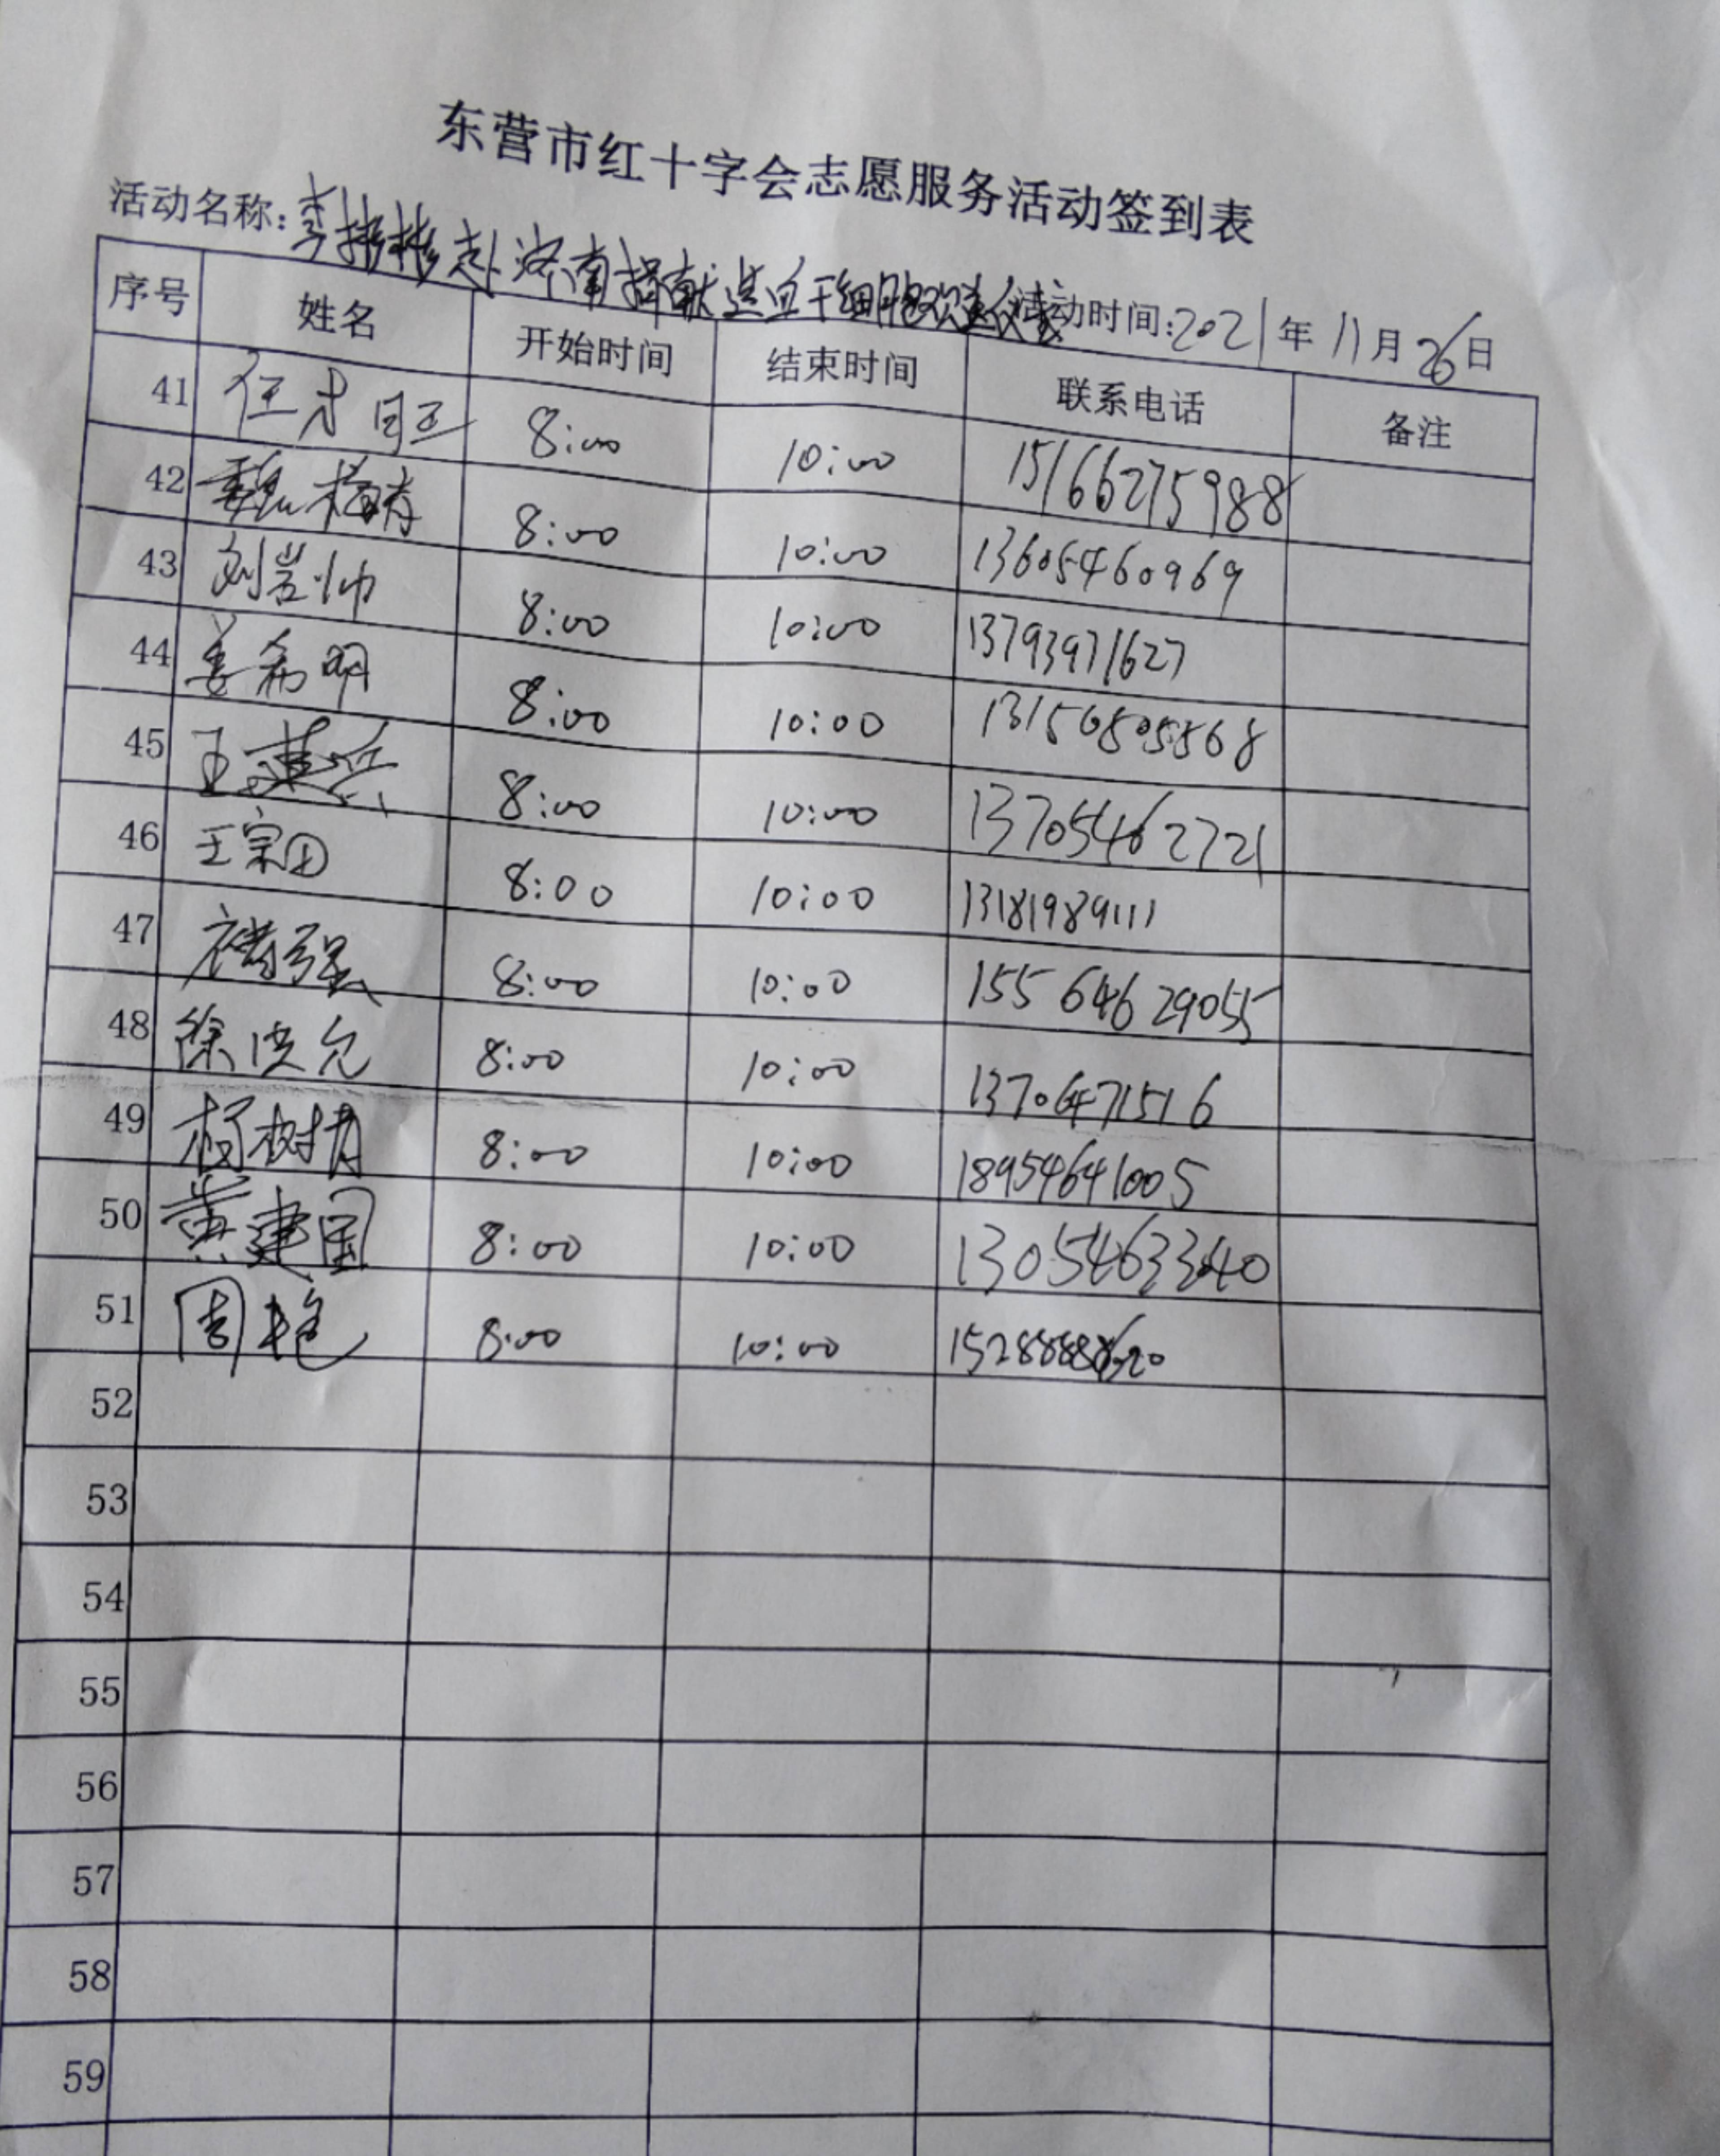 东营市红十字会志愿服务活动签到表
活动名称:李彬彬赴济南捐献造血干细胞欢送仪式 活动时间:2021年11月26日
序号 姓名 开始时间 结束时间 联系电话 备注
41 8:00 10:00 15166275988
42 8:00 10:00 13605460969
43 刘岩帅 8:00 10:00 13793971627
44 姜希明 8:00 10:00 13150505568
45 王建兵 8:00 10:00 13705462721
46 王宗田 8:00 10:00 13181989111
47 强 8:00 10:00 15564629055
48 徐洪允 8:00 10:00 13706471516
49 杨树 8:00 10:00 18954641005
50 黄建国 8:00 10:00 1305463340
51 周艳 8:00 10:00
52
53
54
55
56
57
58
59